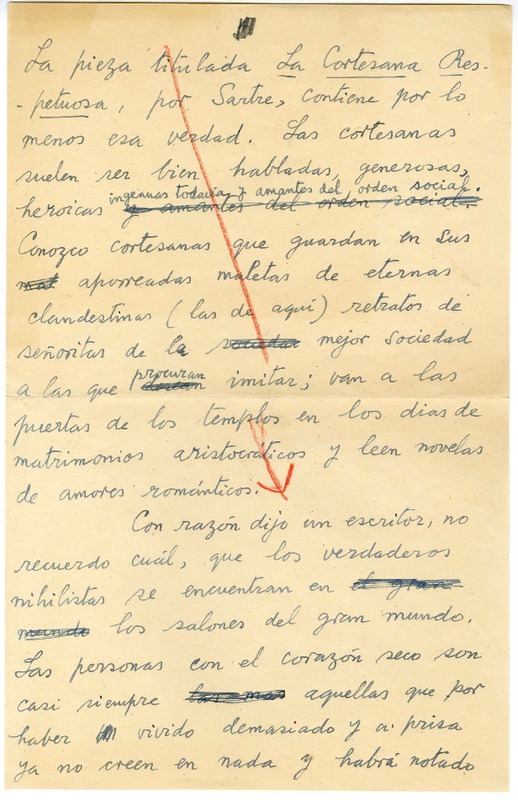 La pieza titulada La Cortesana Res-
-petuosa, por Sartre, contiene por lo
menos esa verdad. Las cortesanas
suelen ser bien habladas, generosas,
ingenuas todavía y amantes del orden social.
heroicas y amantes del orden social.
Conozco cortesanas que guardan en sus
mal aporreadas maletas de eternas
clandestinas (las de aquí) retratos de
señoritas de la sociedad mejor sociedad
procuran
a las que desean imitar; van a las
puertas de los templos en los dias de
matrimonios aristocráticos y leen novelas
de amores románticos.
Con razón dijo un escritor, no
recuerdo cuál, que los verdaderos
nihilistas se encuentran en el gran
mundo los salones del gran mundo.
Las personas con el corazón seco son
casi siempre las mas aquellas que por
haber vivido demasiado y a prisa
ya no creen en nada y habrá notado